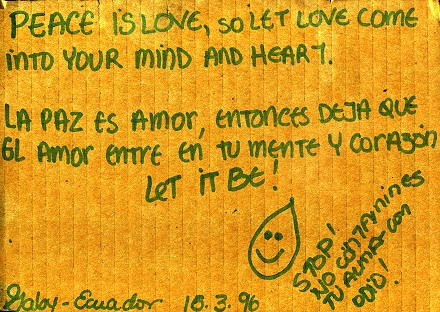 PEACE IS LOVE, SO LET LOVE COME
INTO YOUR MIND AND HEART.
LA PAZ ES AMOR, ENTONCES DEJA QUE
EL AMOR ENTRE EN TU MENTE Y CORAZÓN
LET IT BE!
STOP!
NO CONTAMINES
TU ALMA CON
ODIO!
Gaby - Ecuador 18.3.96